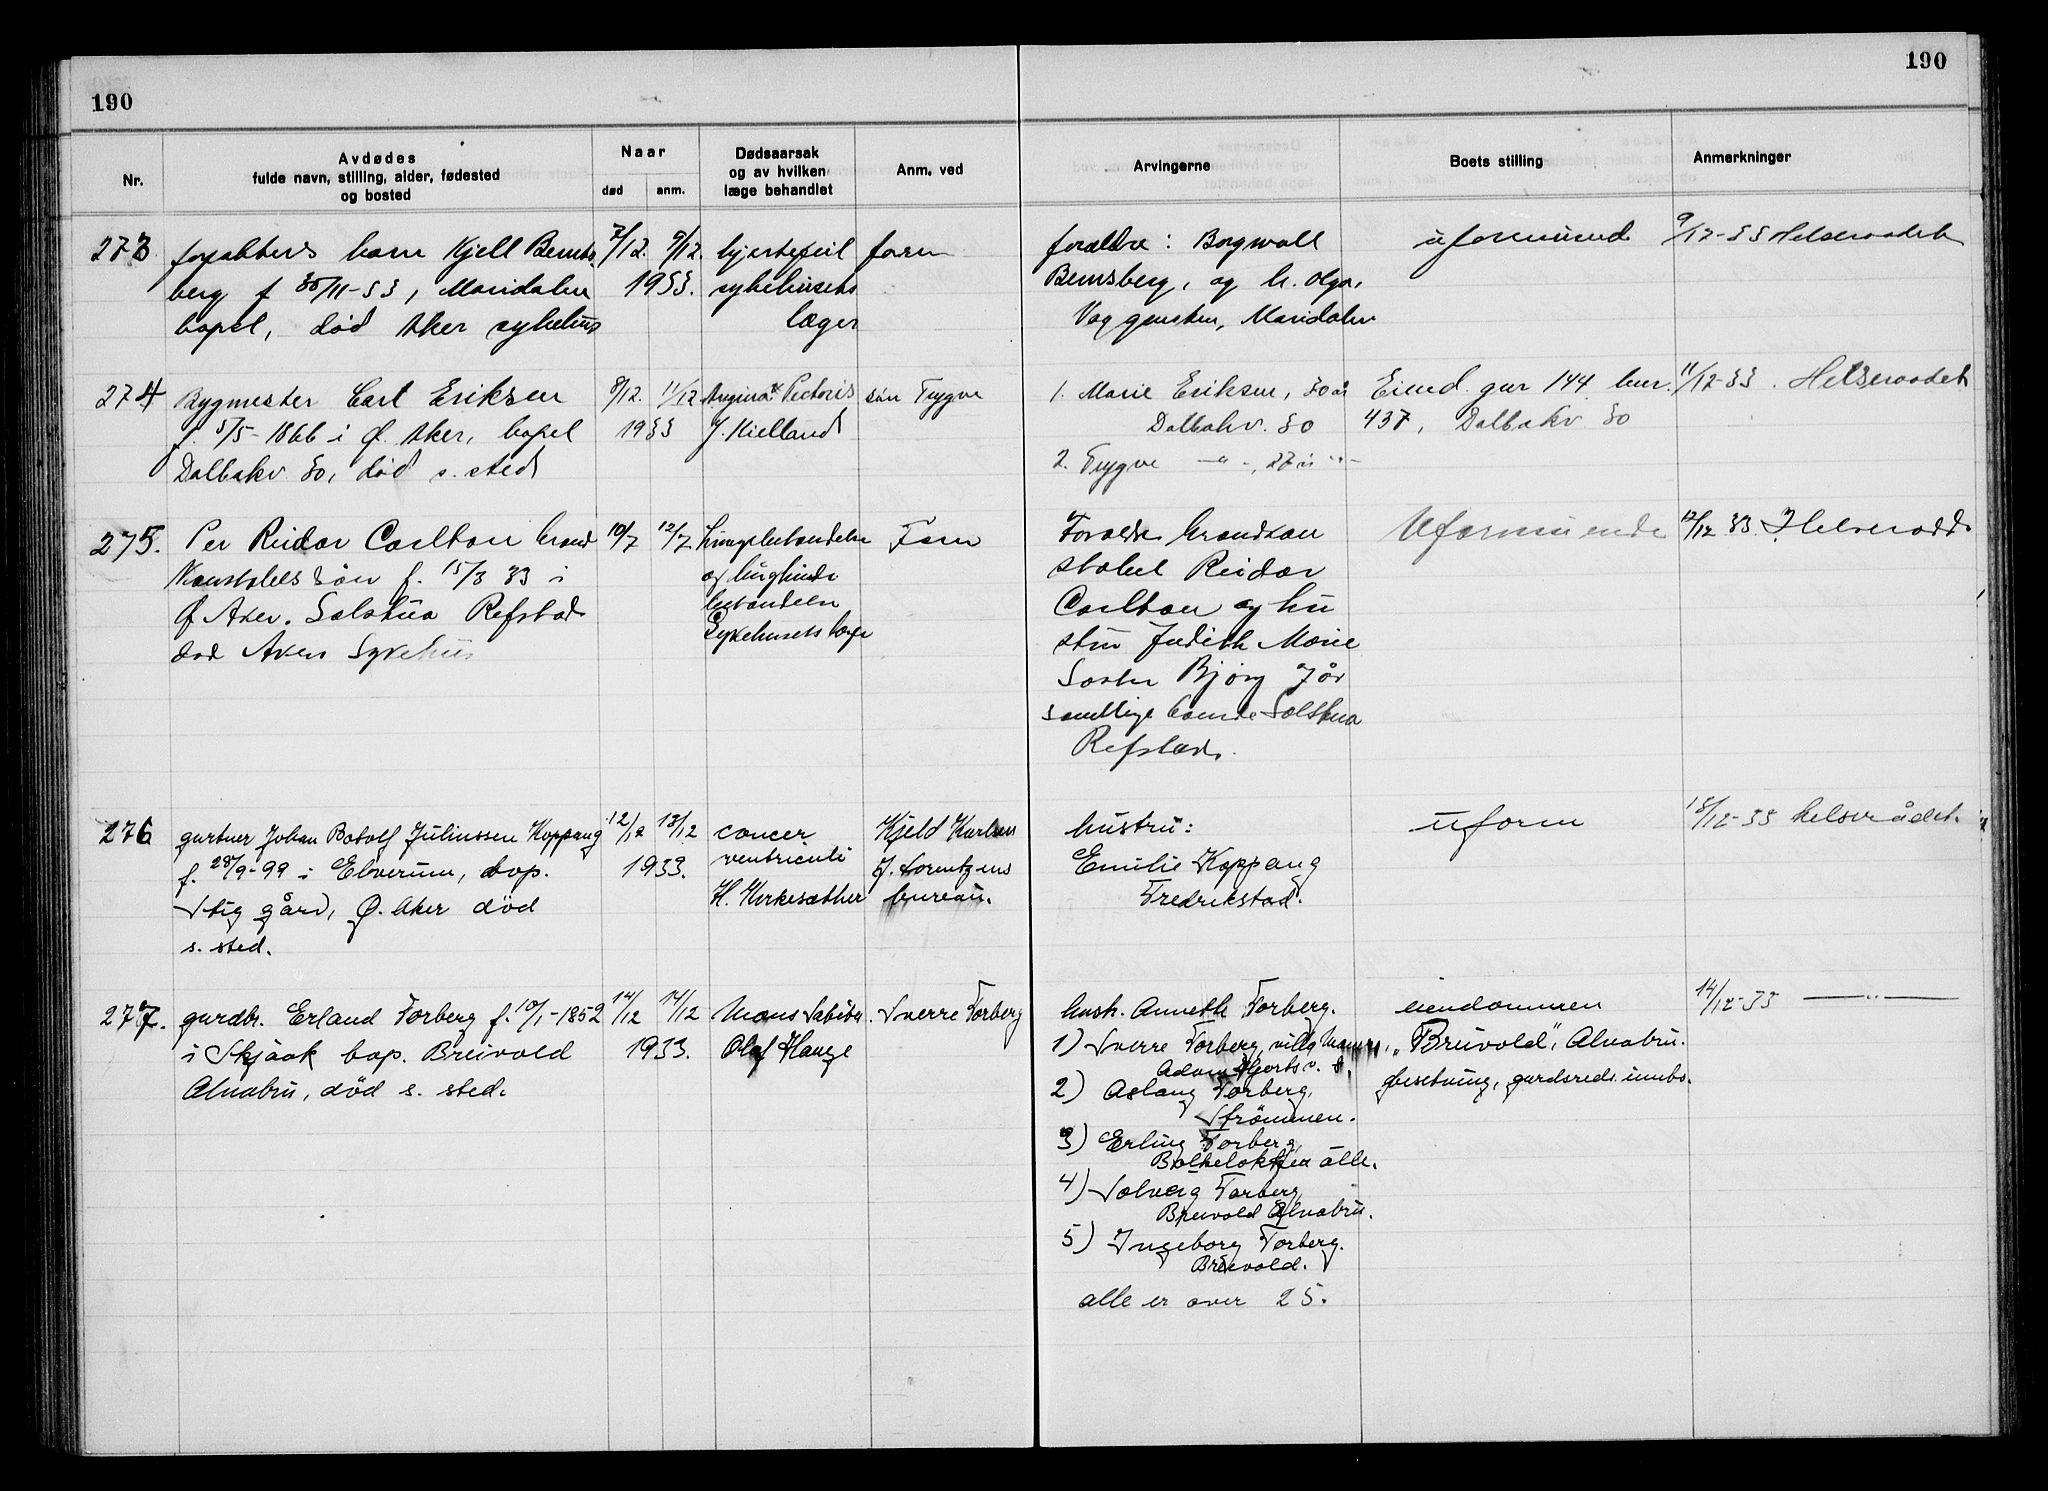 190
190
Nr.
Avdødes
fulde navn, stilling, alder, fødested
og bosted
Naar
død
anm.
Dødsaarsak
og av hvilken
læge behandlet
Anm. ved
Arvingerne
Boets stilling
Anmerkninger
273
barn Kjell
berg f 30/11-33, Maridalen
bopæl, død Aker sykehus
7/12. 9/12.
1933.
hjertefeil
sykehusets
læger
faren
foreldre: Borgwall
Bernsberg, og h. Olga,
Maridalen
uformuend
9/12-33 Helseraadet
274
Bygmester Carl Eriksen
f. 5/5-1866 i Ø. Aker, bopæl
Dalbakv. 30, død s. sted
8/12. 11/12
1933
Angina Pectoris
J. Kielland
søn Trygve
1. Marie Eriksen, 30 år
Dalbakv. 30
2. Trygve —"—, 27 år "—
Eiend. gnr 144 bnr.
437, Dalbakv 30
11/12-33. Helseraadet
275.
Per Reidar Carlton brand
konstabels søn f. 15/3 33 i
Ø Aker. Solstua Refstad
død Aker Sykehus
10/7 12/7
Lungebetændelse
og
betændelse
Sykehusets læge
Far
Forældre brandkon
stabel Reidar
Carlton og hu
stru Judith Marie
Søster Bjørg 7 år
samtlige boende Solstua
Refstad.
Uformuende
12/12 33. Helseradd.
276
gartner Johan Botolf Juliussen Koppang
f. 28/9-99 i Elverum, bop.
Stig gård, Ø. Aker død
s. sted.
12/12 13/12
1933.
cancer
ventriculi
H. Kirkesæther
Kjeld Karlsen
J. Lorentzens
bureau.
hustru:
Emilie Koppang
Fredrikstad.
uform
13/12-33 Helserådet.
277.
gardbr. Erland Forberg f. 10/1-1852
i Skjaak bop. Breivold
Alnabru, død s. sted.
14/12 14/12
1933.
Olaf Hauge
Sverre Forberg
hustr. Annette Forberg.
1) Sverre Forberg, villa
Adam Hjorts v.
2) Aslaug Forberg,
Strømmen.
3) Erling Forberg,
Bakkeløkken alle.
4) Solveig Forberg,
Breivold Alnabru.
5) Ingeborg Forberg.
Breivold.
alle er over 25.
eiendommen
„Breivold", Alnabru.
besetning, gardsreds. innbo.
14/12-33 —"—